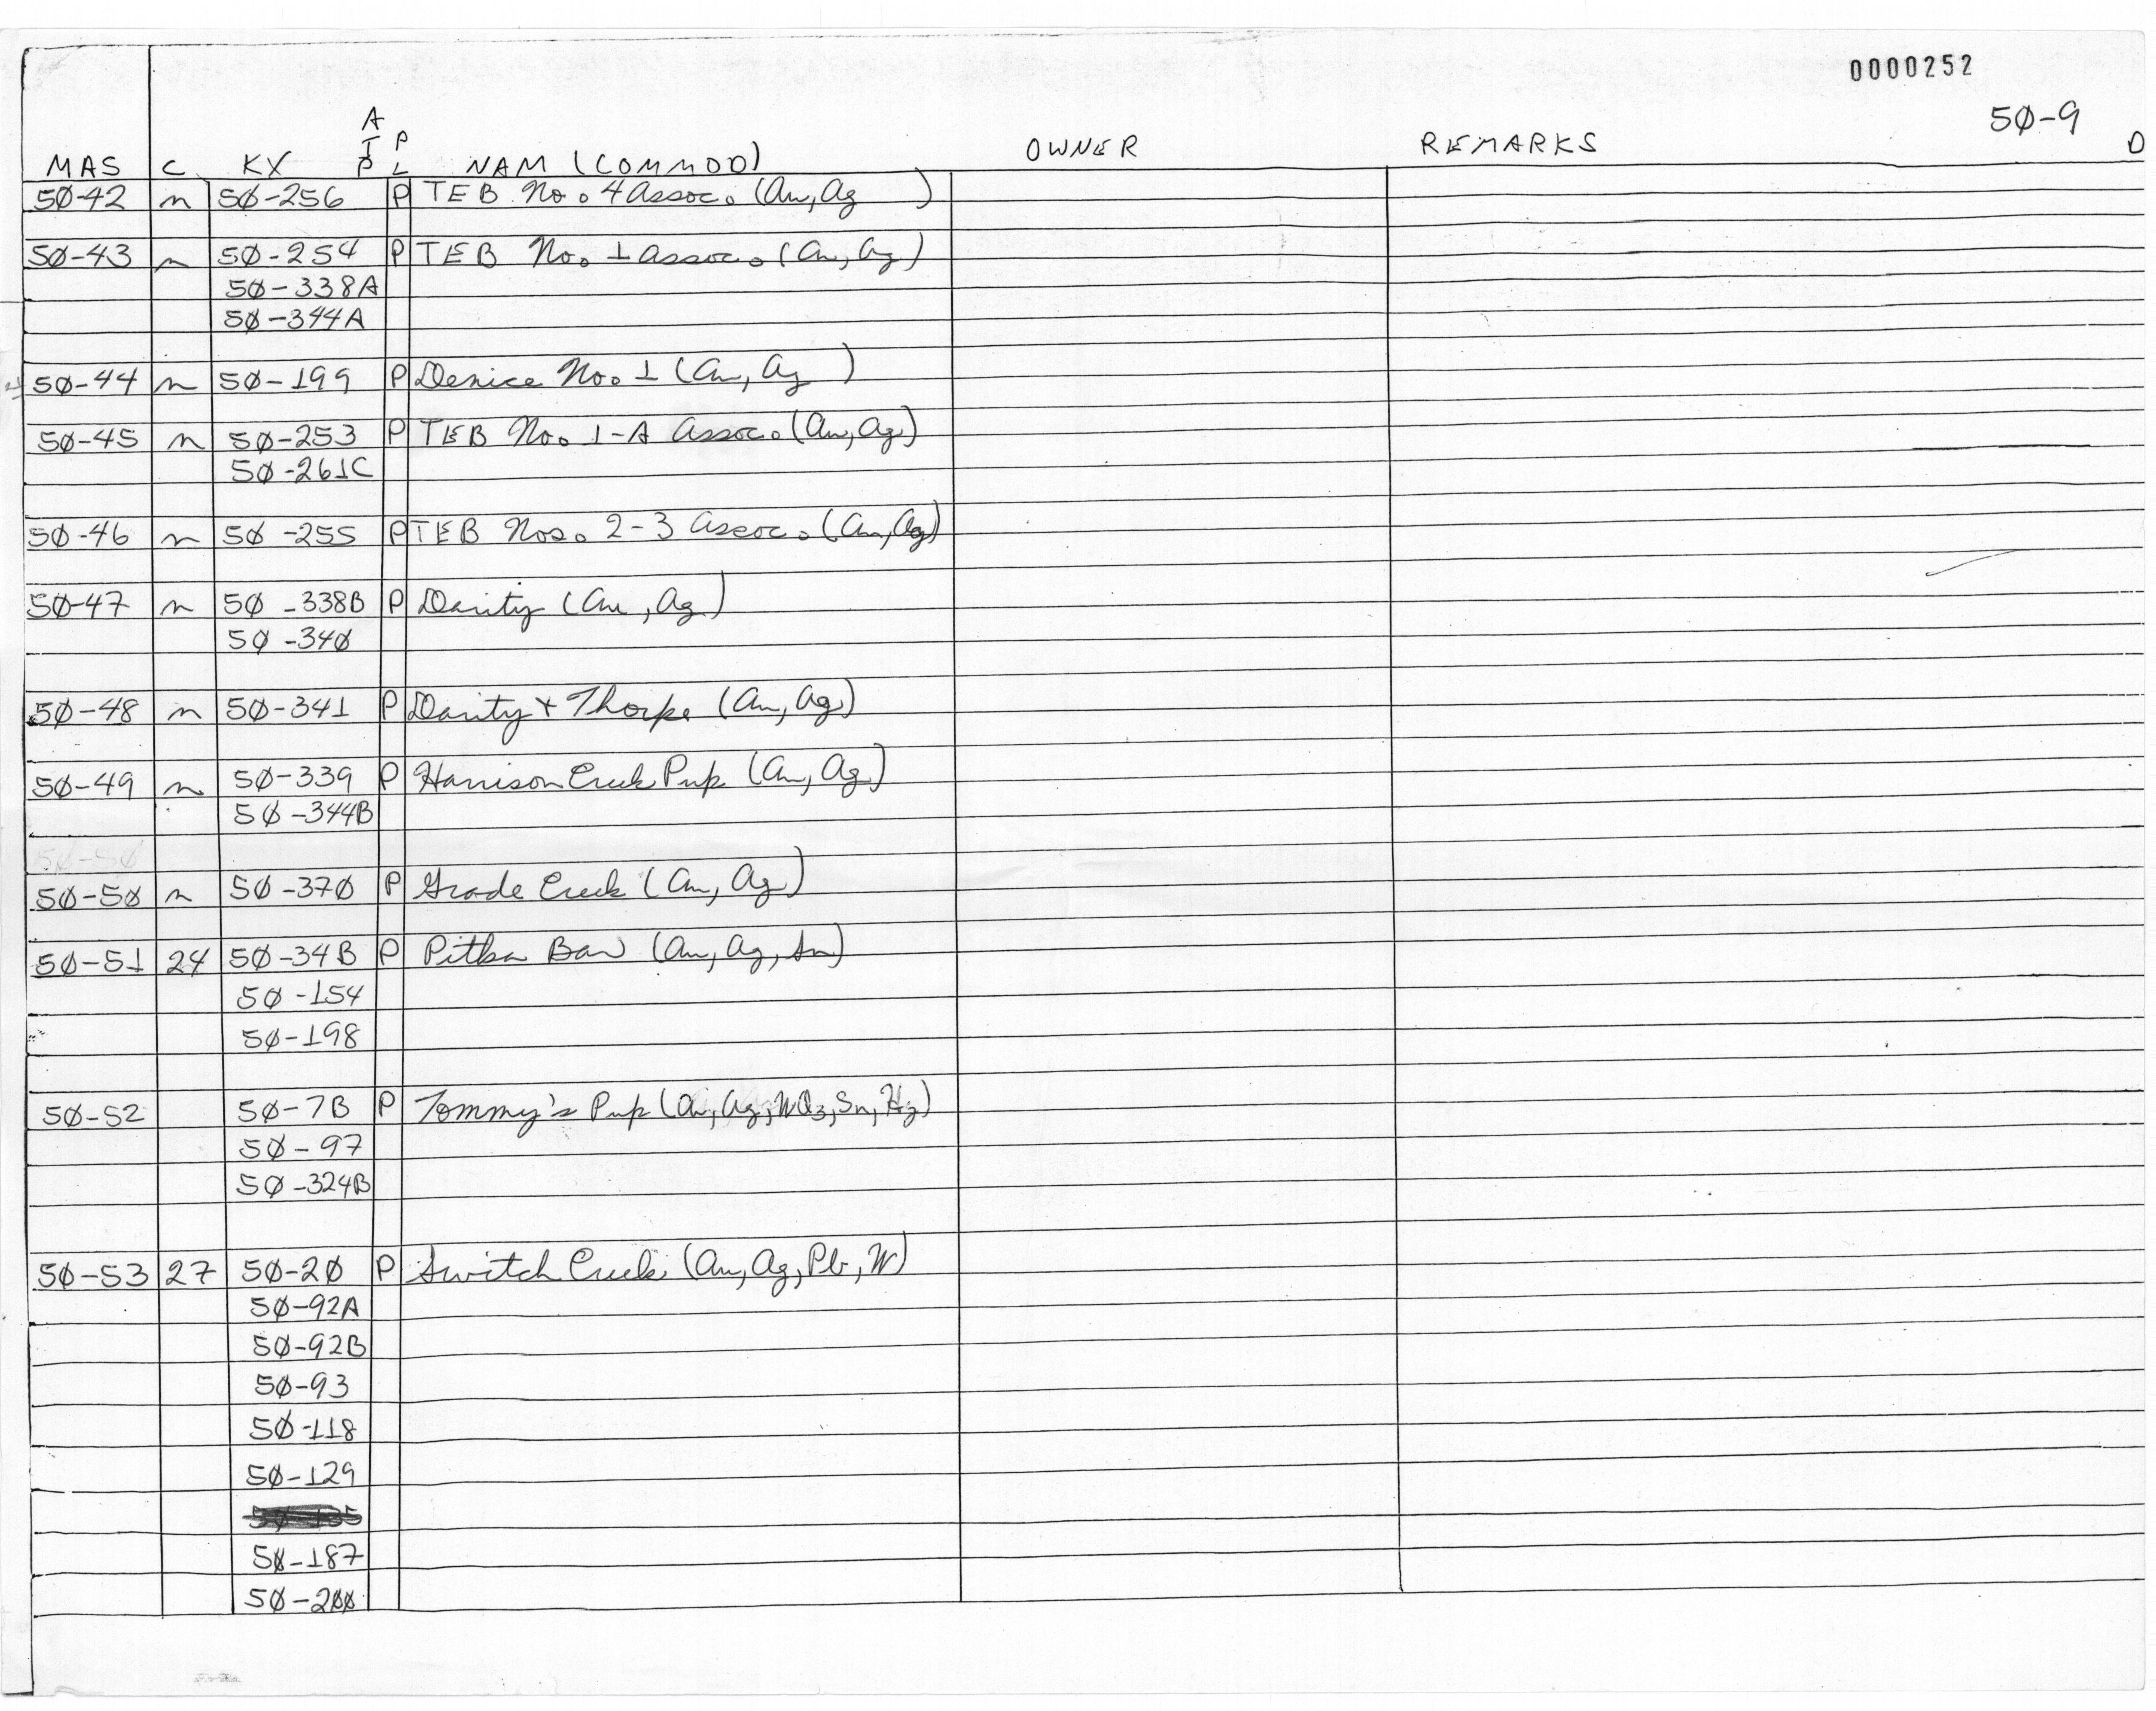 0000252
50-9
MAS C KX ATP PL NAM (COMMOD) OWNER REMARKS D
50-42 n 50-256 P TEB No. 4 Assoc. (Au, Ag )
50-43 n 50-254 P TEB No. 1 Assoc. (Au, Ag)
50-338A
50-344A
50-44 n 50-199 P Denice No. 1 (Au, Ag )
50-45 n 50-253 P TEB No. 1-A Assoc. (Au, Ag)
50-261C
50-46 n 50-255 P TEB Nos. 2-3 Assoc. (Au, Ag)
50-47 n 50-338B P Darity (Au, Ag)
50-340
50-48 n 50-341 P Darity + Thorpe (Au, Ag)
50-49 n 50-339 P Harrison Creek Pup (Au, Ag)
50-344B
50-50
50-50 n 50-370 P Grade Creek (Au, Ag)
50-51 24 50-34B P Pitka Bar (Au, Ag, Sn)
50-154
50-198
50-52 50-7B P Tommy's Pup (Au, Ag, WO3, Sn, Hg)
50-97
50-324B
50-53 27 50-20 P Switch Creek (Au, Ag, Pb, W)
50-92A
50-92B
50-93
50-118
50-129
50-187
50-200